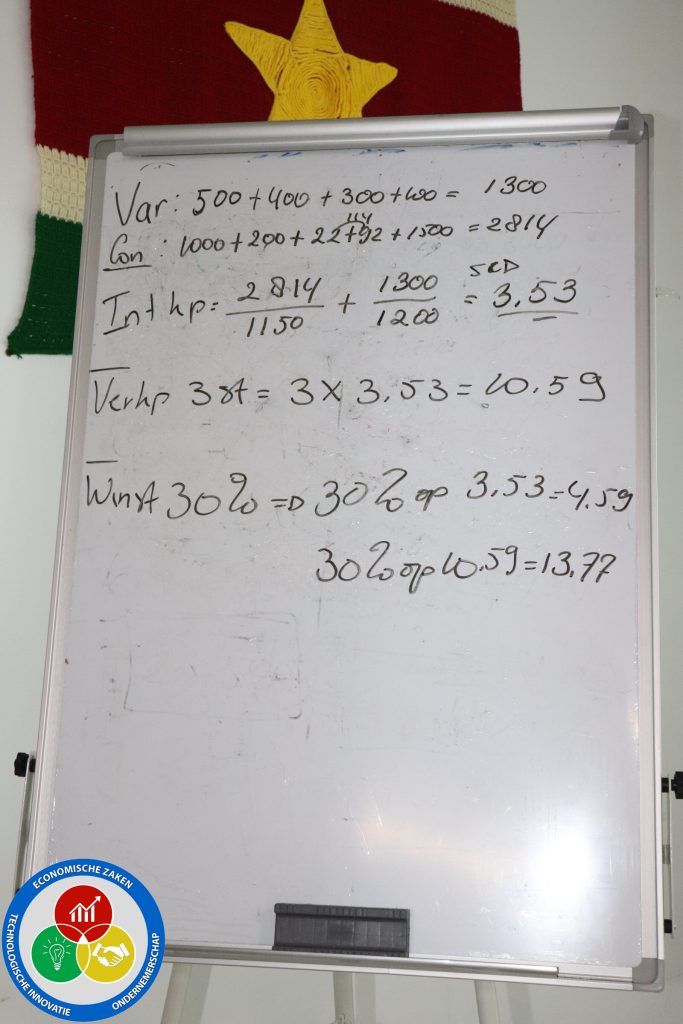 Var: 500 + 400 + 300 + 100 = 1300
114
Con: 1000 + 200 + 22 + 92 + 1500 = 2814
Int kp = 2814/1150 + 1300/1200 = SRD 3,53
Verkp 3 st = 3 x 3,53 = 10.59
Winst 30% => 30% op 3.53 = 4.59
30% op 10.59 = 13,77
ECONOMISCHE ZAKEN
TECHNOLOGISCHE INNOVATIE
ONDERNEMERSCHAP